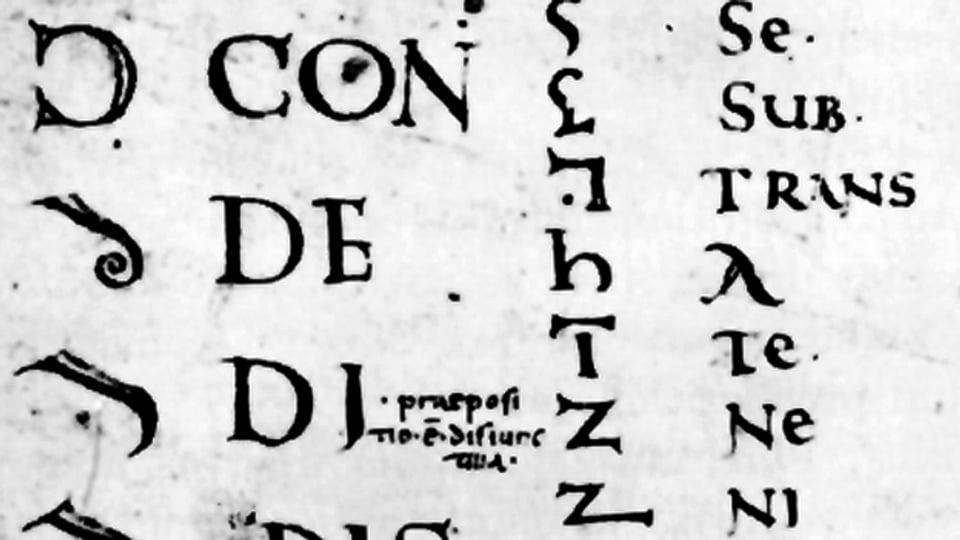 Ↄ CON
DE
DI · praeposi
tio · ē · disiunc
tiua ·
DIS
Se ·
SUB ·
TRANS
h A
T Te ·
Z Ne
Z NI